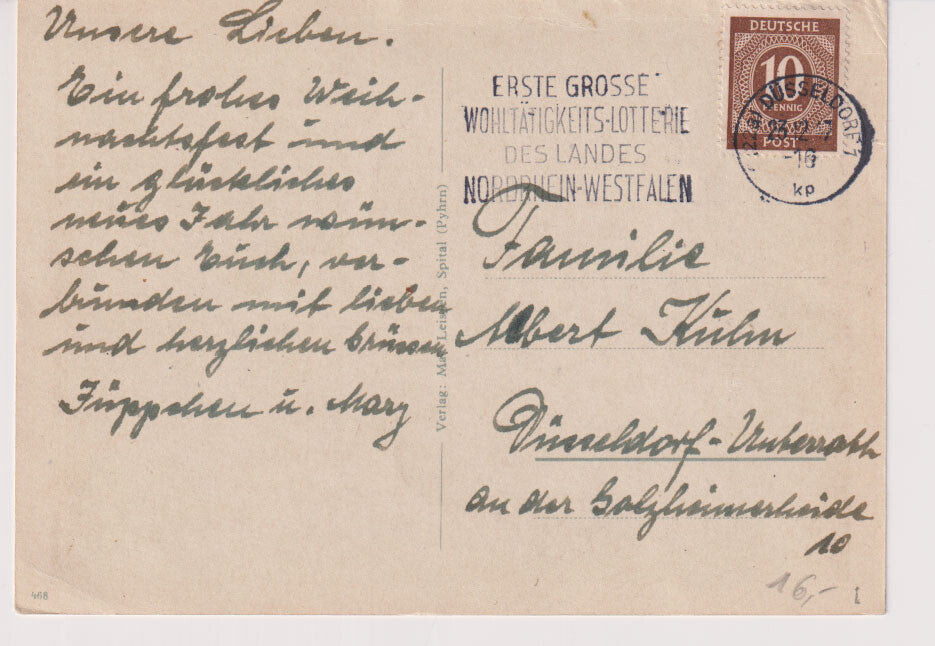 Unsere Lieben.
Ein frohes Weih-
nachtsfest und
ein glückliches
neues Jahr wün-
schen Euch, ver-
bunden mit lieben
und herzlichen Grüssen
Jüppchen u. Mary
468
Verlag: Leisten, Spital (Pyhrn)
ERSTE GROSSE
WOHLTÄTIGKEITS-LOTTERIE
DES LANDES
NORDRHEIN-WESTFALEN
DEUTSCHE
10
PFENNIG
POST
DÜSSELDORF 1
-16
kp
Familie
Albert Kühn
Düsseldorf-Unterrath
an der Golzheimerheide
10
16,-